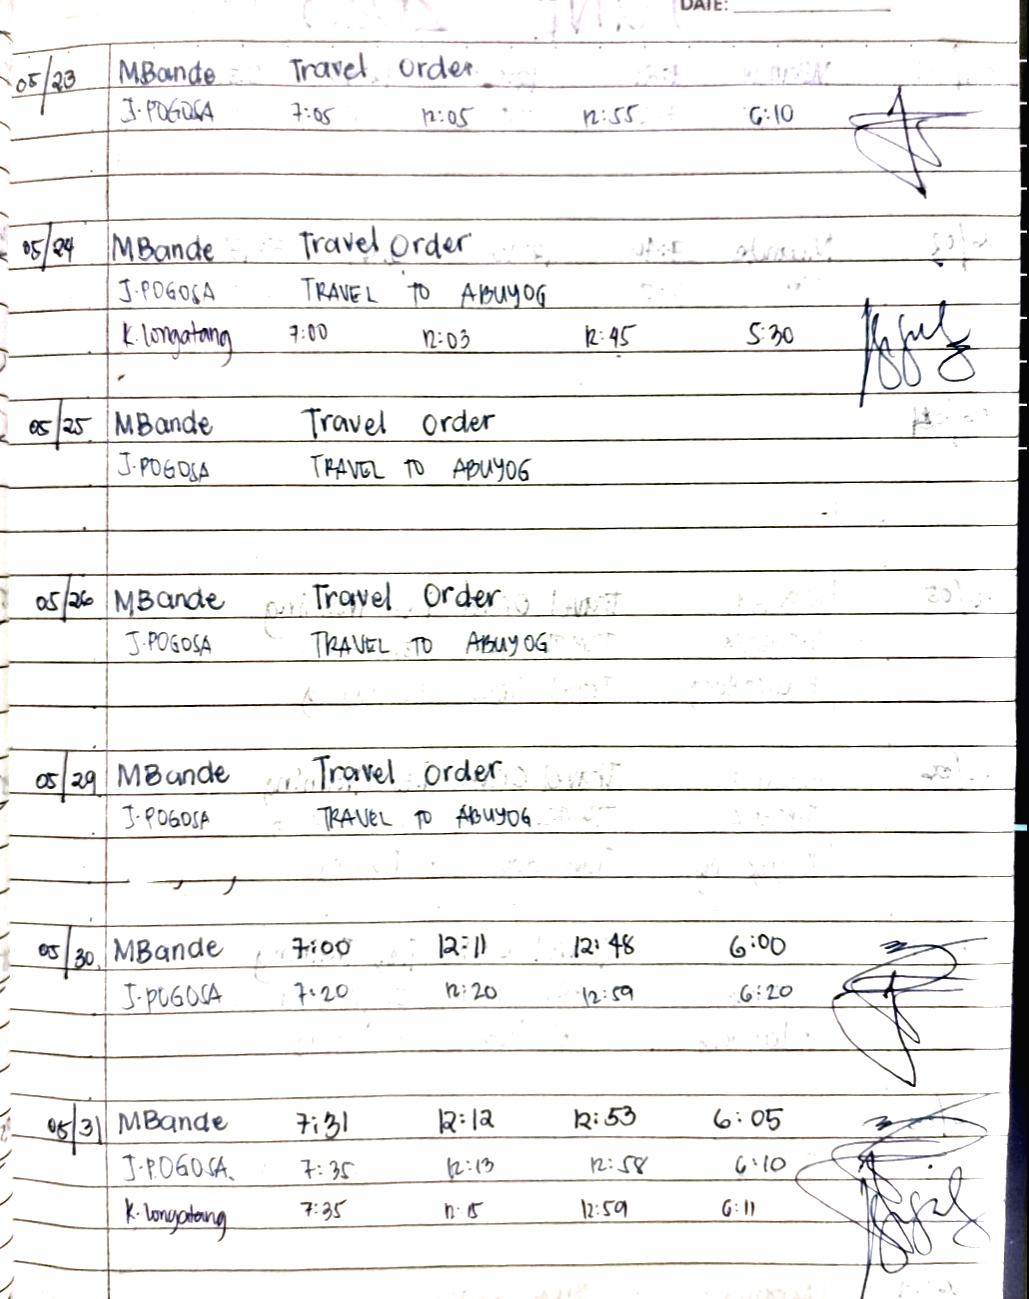 DATE:
05/23 MBande Travel Order
J.POGOSA 7:05 12:05 12:55 6:10
05/24 MBande Travel Order
J.POGOSA TRAVEL TO ABUYOG
K.longatang 7:00 12:03 12:45 5:30
05/25 MBande Travel Order
J.POGOSA TRAVEL TO ABUYOG
05/26 MBande Travel Order
J.POGOSA TRAVEL TO ABUYOG
05/29 MBande Travel Order
J.POGOSA TRAVEL TO ABUYOG
05/30 MBande 7:00 12:11 12:48 6:00
J.POGOSA 7:20 12:20 12:59 6:20
05/31 MBande 7:31 12:12 12:53 6:05
J.POGOSA. 7:35 12:13 12:58 6:10
K.longatang 7:35 12:15 12:59 6:11